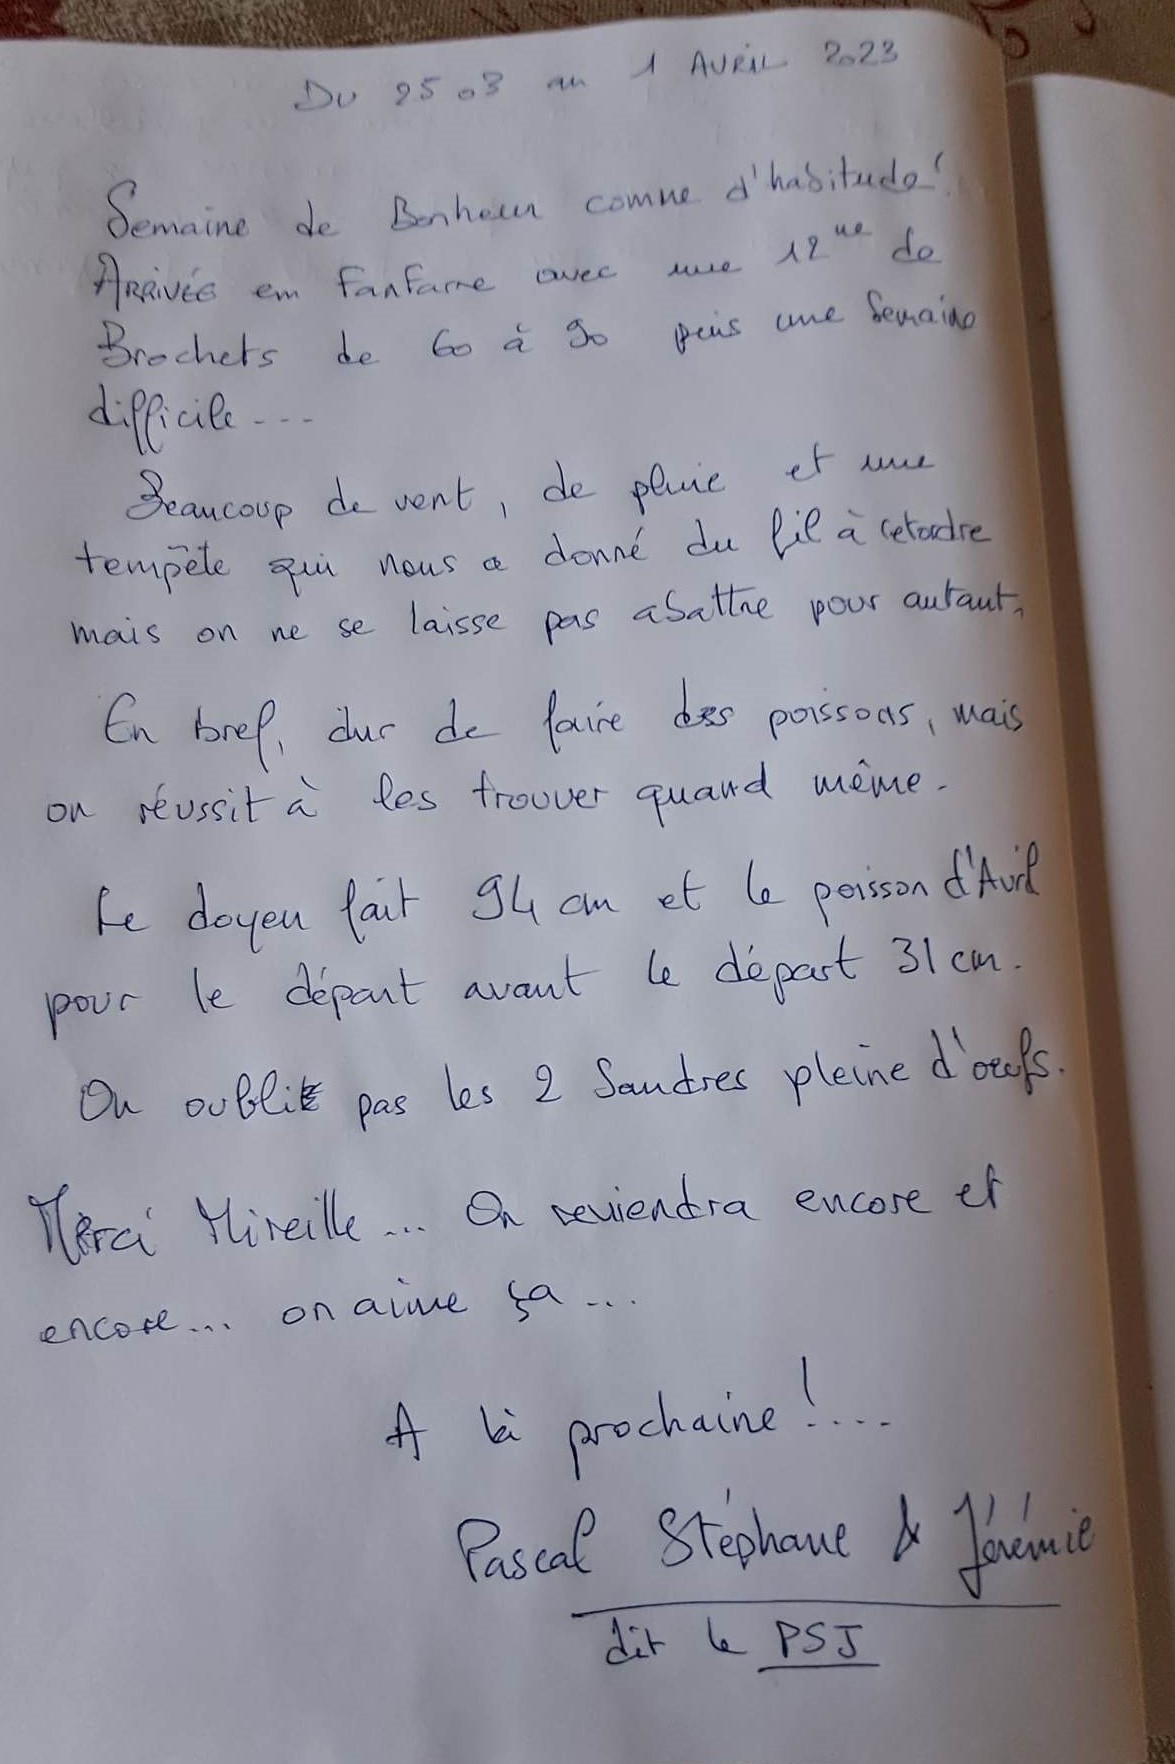 DU 25 03 au 1 AVRIL 2023
Semaine de Bonheur comme d'habitude !
ARRIVÉE em FanFarre avec une 12ne de
Brochets de 60 à 90 puis une Semaine
difficile ----
Beaucoup de vent, de pluie et une
tempête qui nous a donné du fil à retordre
mais on ne se laisse pas abattre pour autant,
En bref, dur de faire des poissons, mais
on réussit à les trouver quand même.
Le doyen fait 94 cm et le poisson d'Avril
pour le départ avant le départ 31 cm.
On oublie pas les 2 Sandres pleine d'œufs.
Merci Mireille ... On reviendra encore et
encore ... on aime ça ...
A la prochaine !....
Pascal Stéphane & Jérémie
dit le PSJ